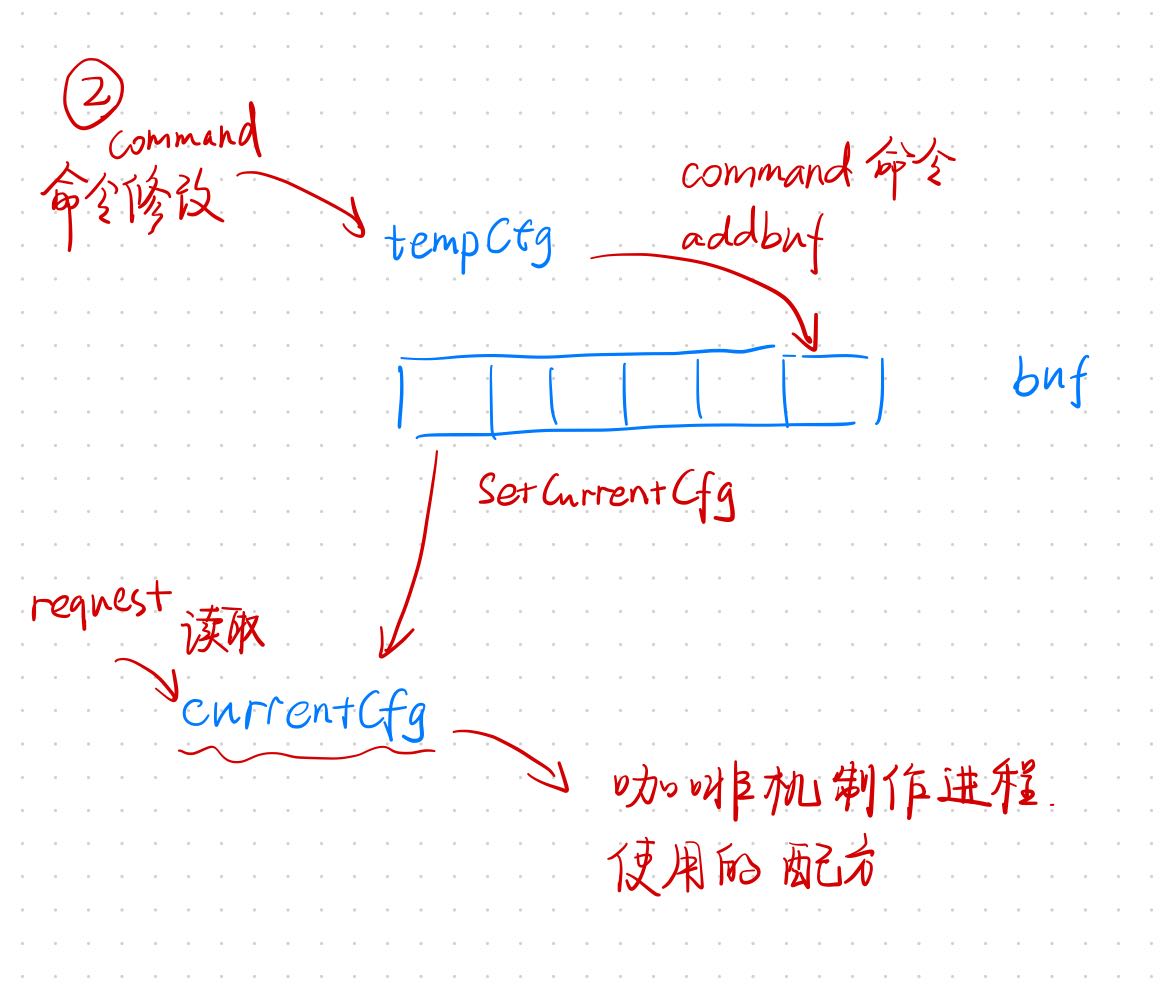 ②
command
命令修改
tempCfg
command 命令
addbuf
buf
SetCurrentCfg
request
读取
currentCfg
咖啡机制作进程.
使用的配方